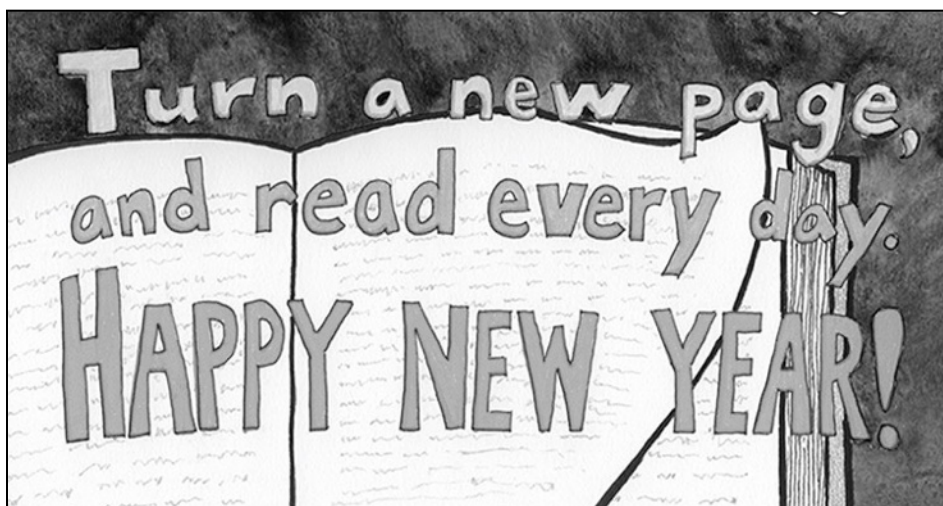 Turn a new page,
and read every day.
HAPPY NEW YEAR!